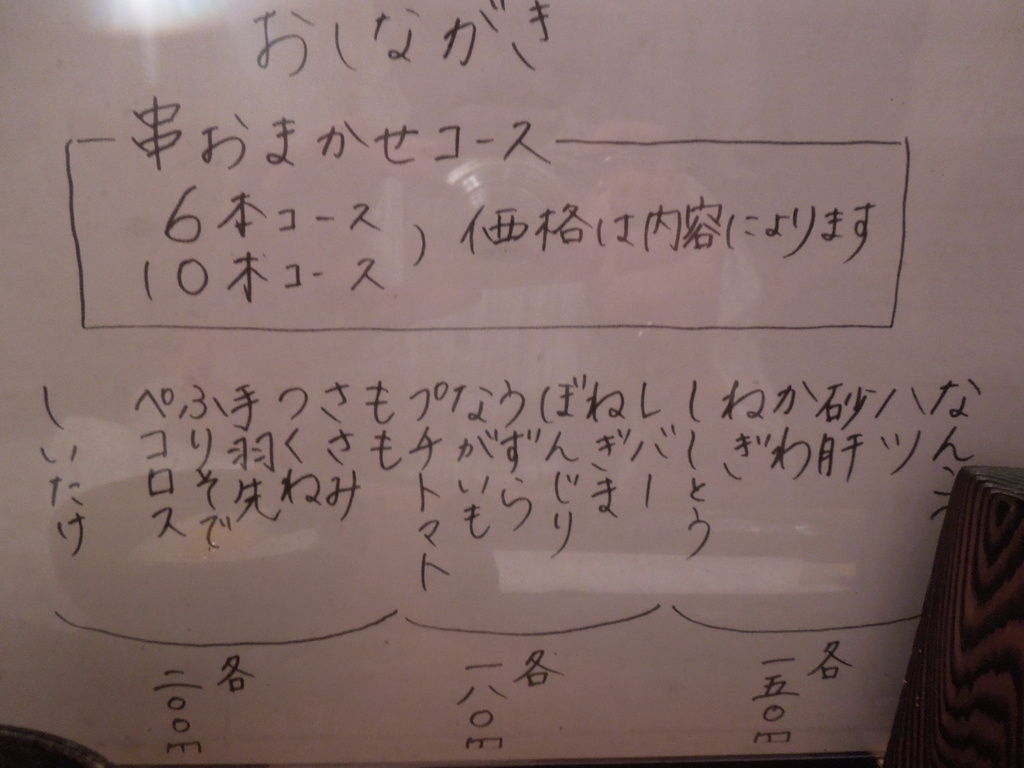 おしながき
串おまかせコース
6本コース
10本コース
) 価格は内容によります
なんこつ
ハツ
砂肝
かわ
ねぎ
ししとう
各
一五〇円
レバー
ねぎま
ぼんじり
うずら
ながいも
プチトマト
各
一八〇円
もも
ささみ
つくね
手羽先
ふりそで
ペコロス
しいたけ
各
二〇〇円